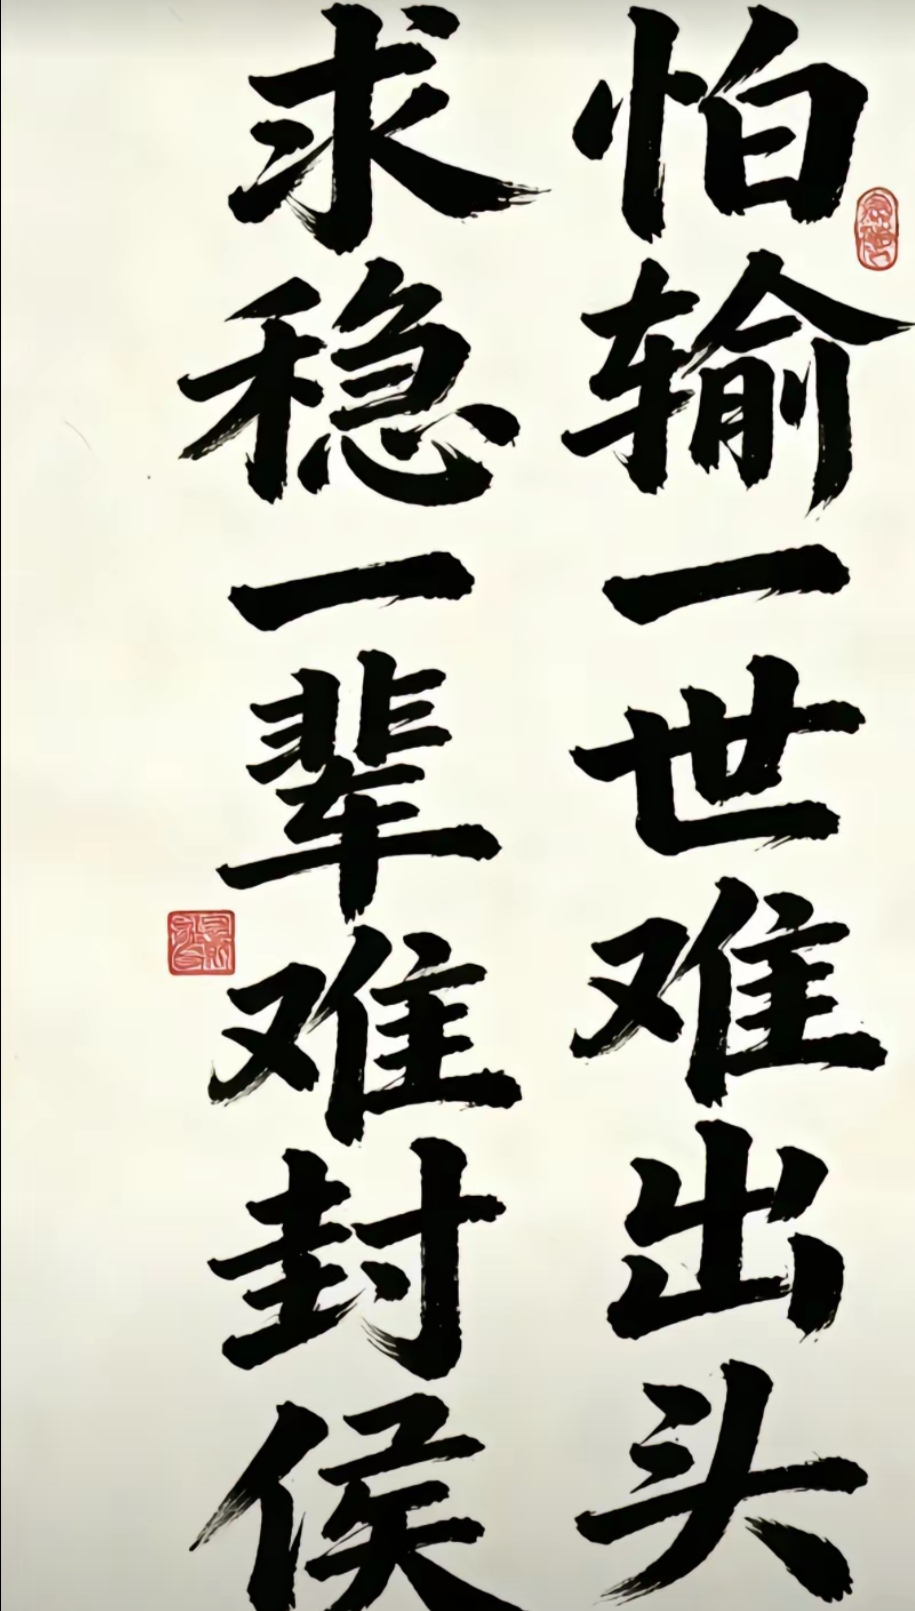 怕输一世难出头
求稳一辈难封侯